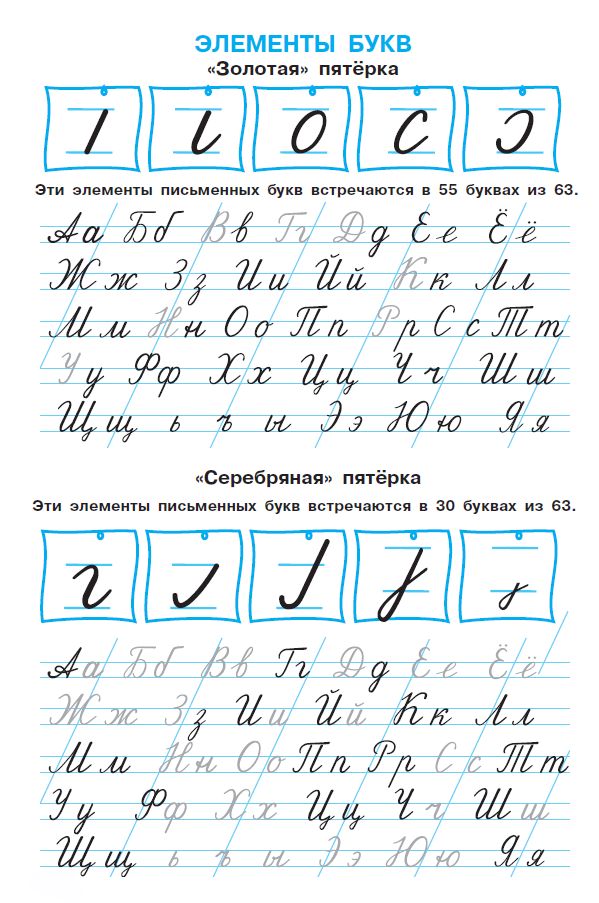 ЭЛЕМЕНТЫ БУКВ
«Золотая» пятёрка
Эти элементы письменных букв встречаются в 55 буквах из 63.
Аа Бб Вв Гг Дд Ее Ёё
Жж Зз Ии Йй Кк Лл
Мм Нн Оо Пп Рр Сс Тт
Уу Фф Хх Цц Чч Шш
Щщ ь ъ ы Ээ Юю Яя
«Серебряная» пятёрка
Эти элементы письменных букв встречаются в 30 буквах из 63.
Аа Бб Вв Гг Дд Ее Ёё
Жж Зз Ии Йй Кк Лл
Мм Нн Оо Пп Рр Сс Тт
Уу Фф Хх Цц Чч Шш
Щщ ь ъ ы Ээ Юю Яя